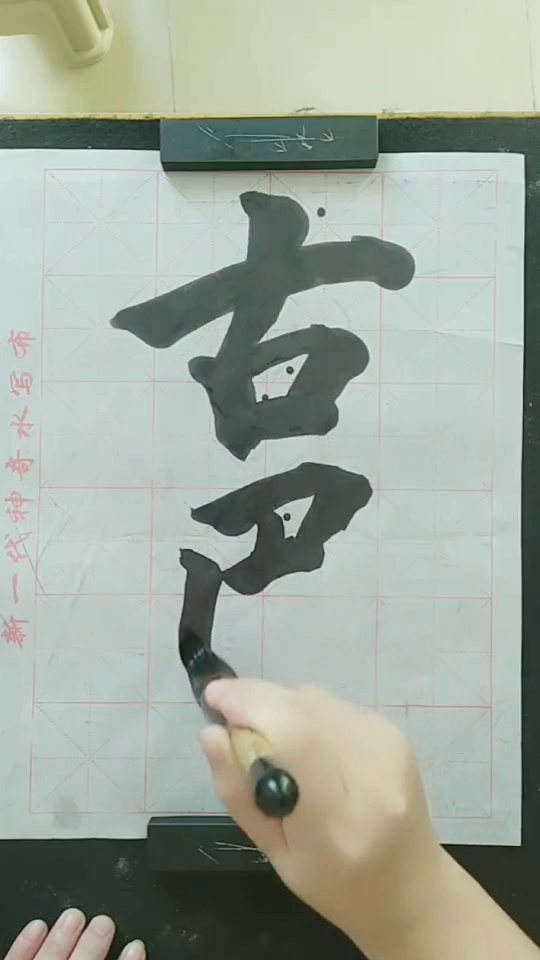 古
新一代神奇水写布